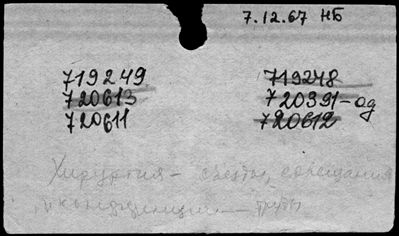 7.12.67 НБ
719249 719248
720613 720391-ад
720611 720612
Хирургия - съезды, совещания
и конференции - труды